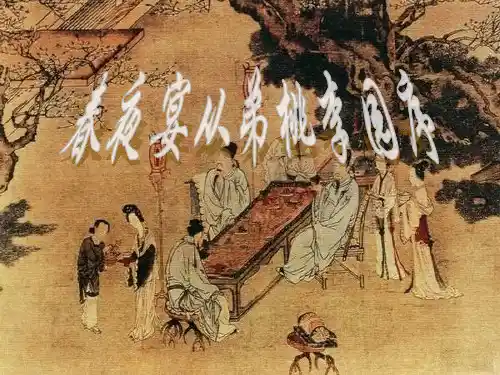 春夜宴从弟桃李园序